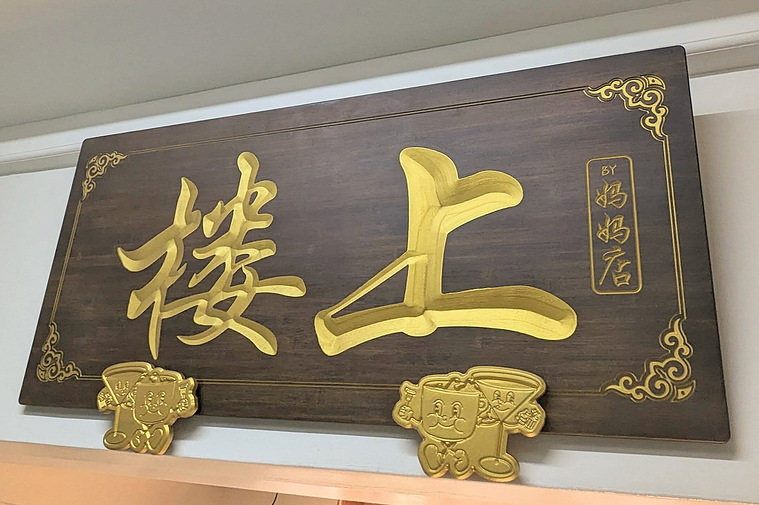 楼上
BY 妈妈店